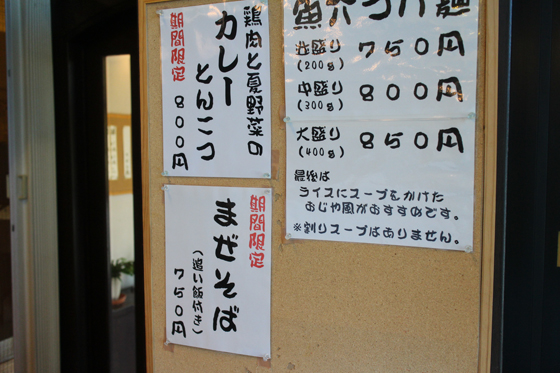 鶏肉と夏野菜の
カレー
とんこつ
期間限定
800円
魚介つけ麺
並盛り 750円
(200g)
中盛り 800円
(300g)
大盛り 850円
(400g)
最後は
ライスにスープをかけた
おじや風がおすすめです。
※割りスープはありません。
期間限定
まぜそば
(追い飯付き)
750円